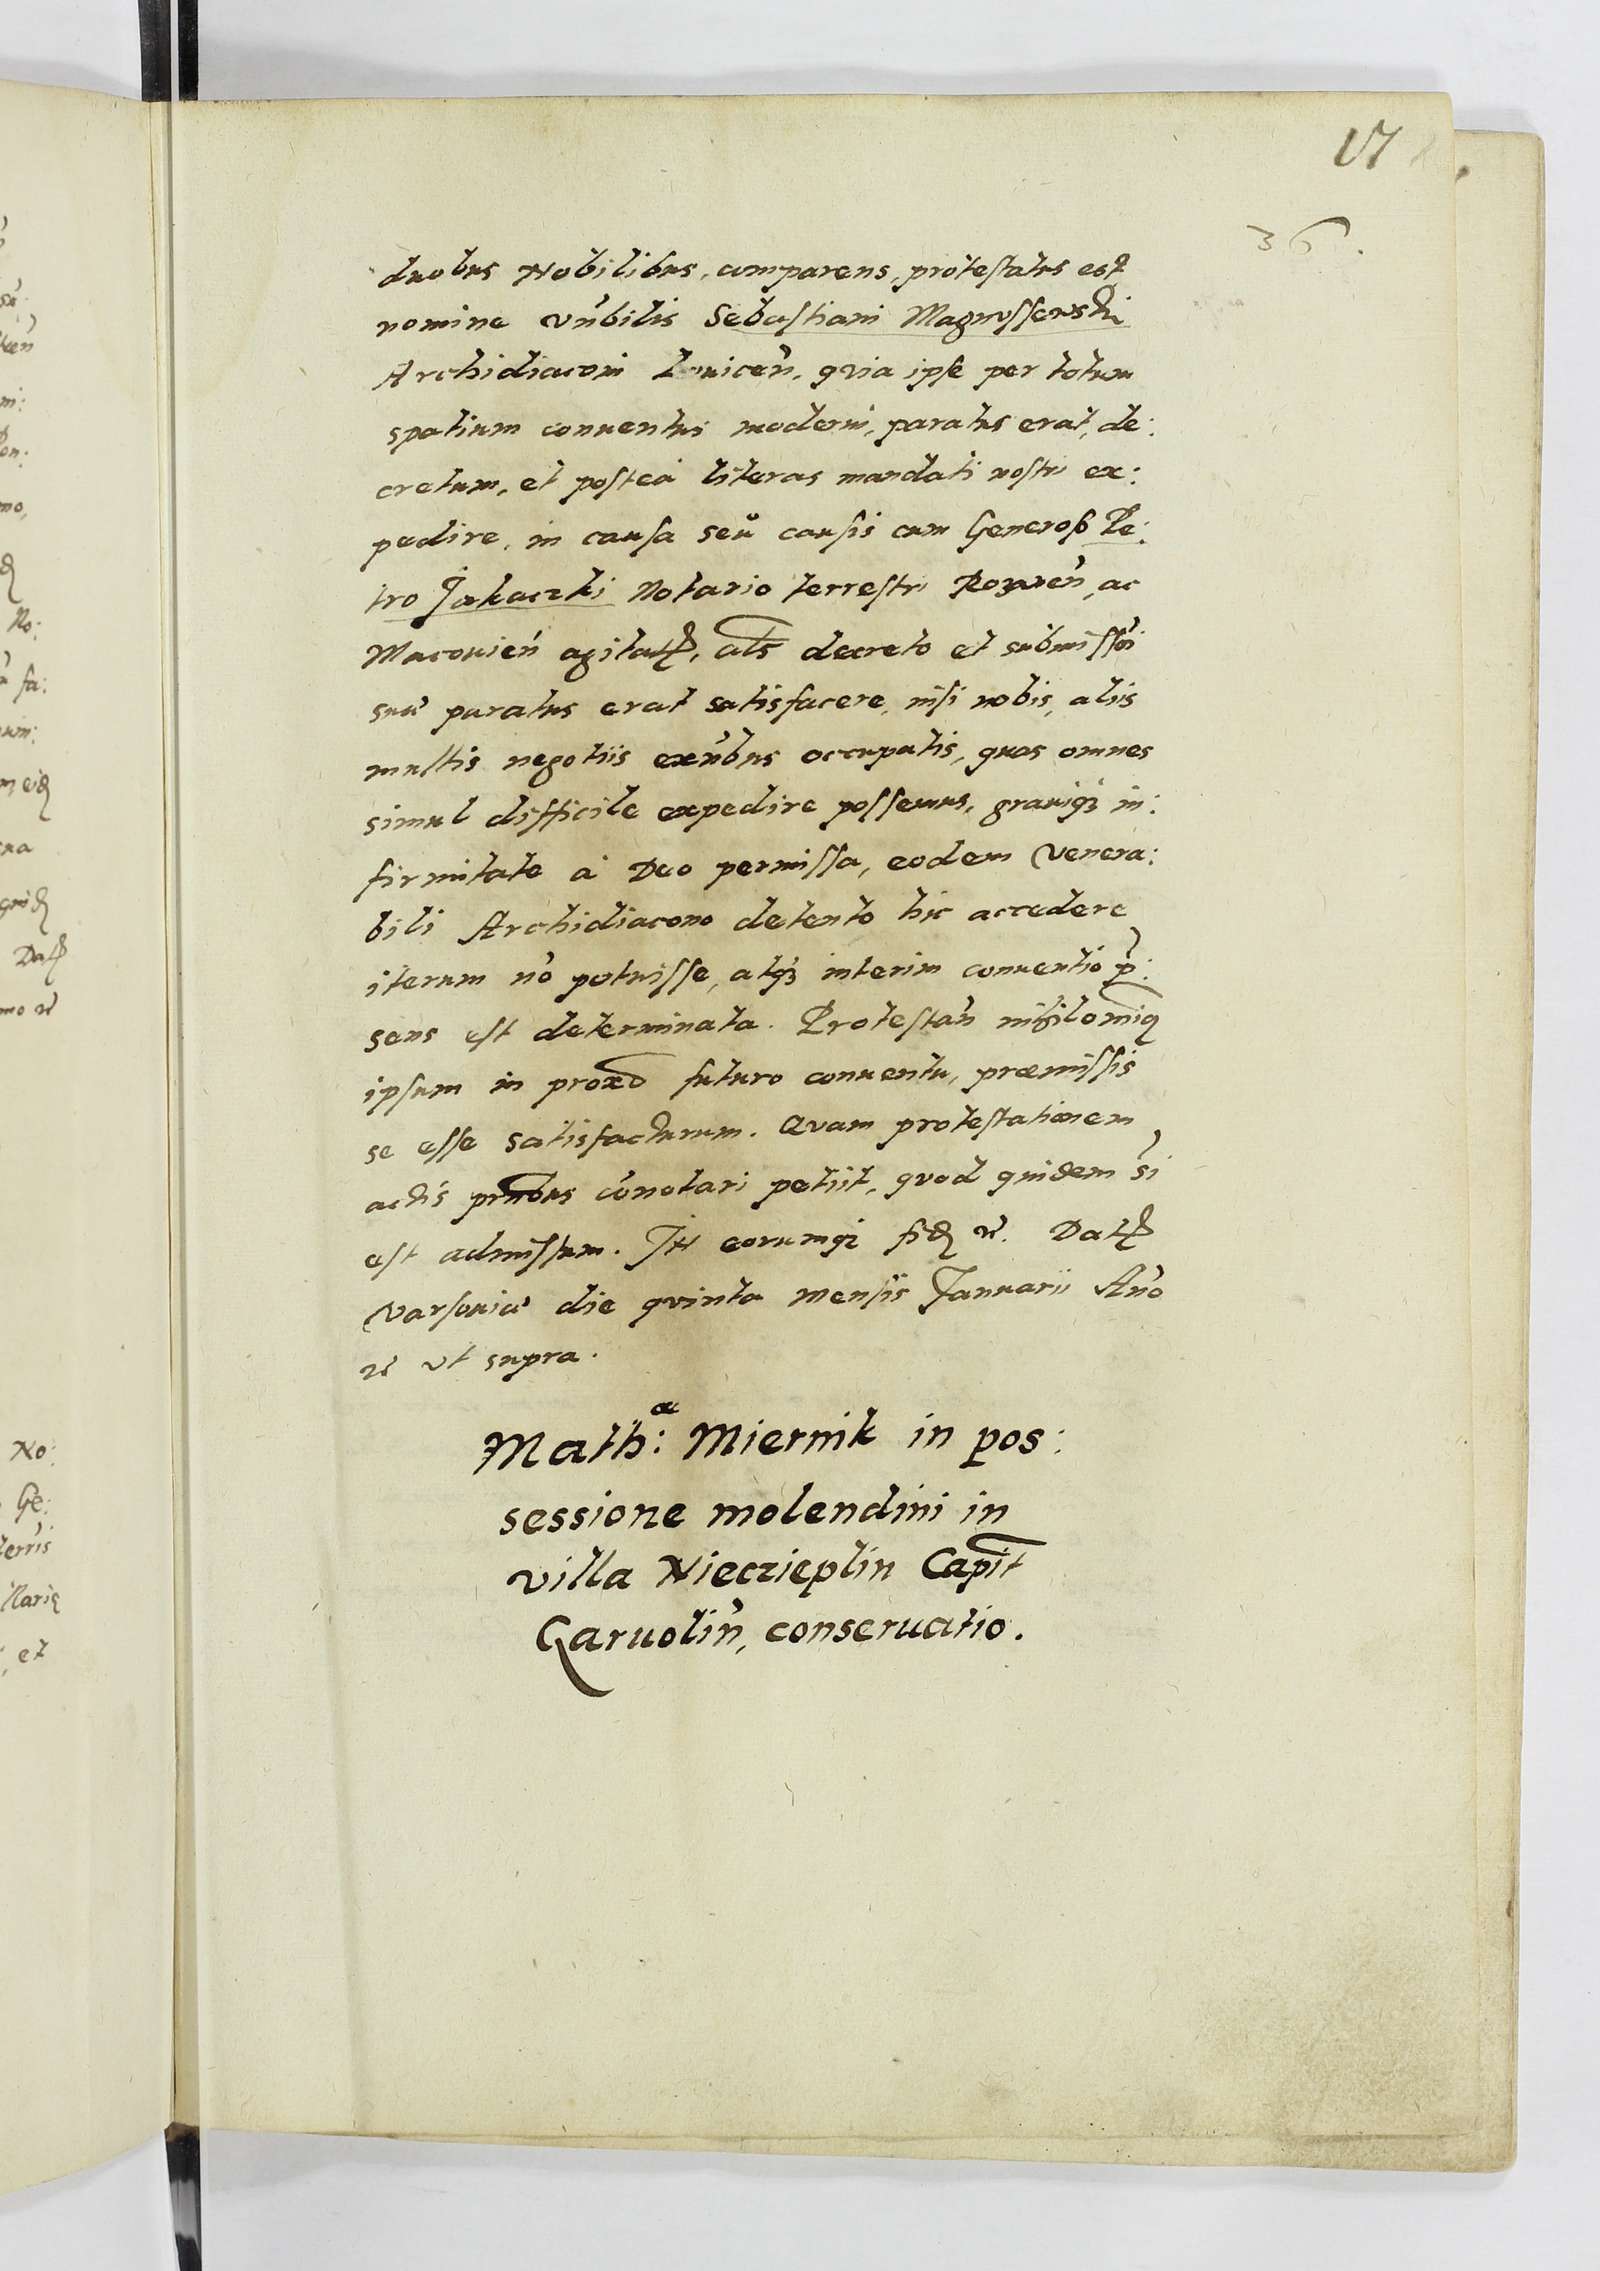 17
36.
duobus Nobilibus, comparens, protestatus est
nomine vn̄bilis Sebastiani Magnussewski
Archidiaconi quia ipse per totum
spatium conuentus moderni, paratus erat, de:
cretum, et postea literas mandati nostri ex:
pedire, in causa seu causis cum Generoso Pe:
tro Jakaczki Notario terrestri Rozanen̄, ac
Maconien̄ agitat, al̄s decreto et submissōi
suæ paratus erat satisfacere, nisi nobis, aliis
multis negotiis exn̄bus occupatis, quas omnes
simul difficile expedire possemus, grauiq3 in:
firmitate à Deo permissa, eodem Venera:
bili Archidiacono detento hic accedere
iterum nō potuisse, atq3 interim conuentio p̄:
sens est determinata. Protestan̄ nihilomiq
ipsum in proxō futuro conuentu, præmissis
se esse satisfacturum. Quam protestationem
actis prn̄bus cōnotari petiit, quod quidem si
est admissum. In eorumq3 fid &. Dat
Varsouiæ die quinta mensis Januarii An̄o
& vt supra.
Math:æ Miernik in pos:
sessione molendini in
villa Nieczieplin Capit̄
Garuolin̄, conseruatio.